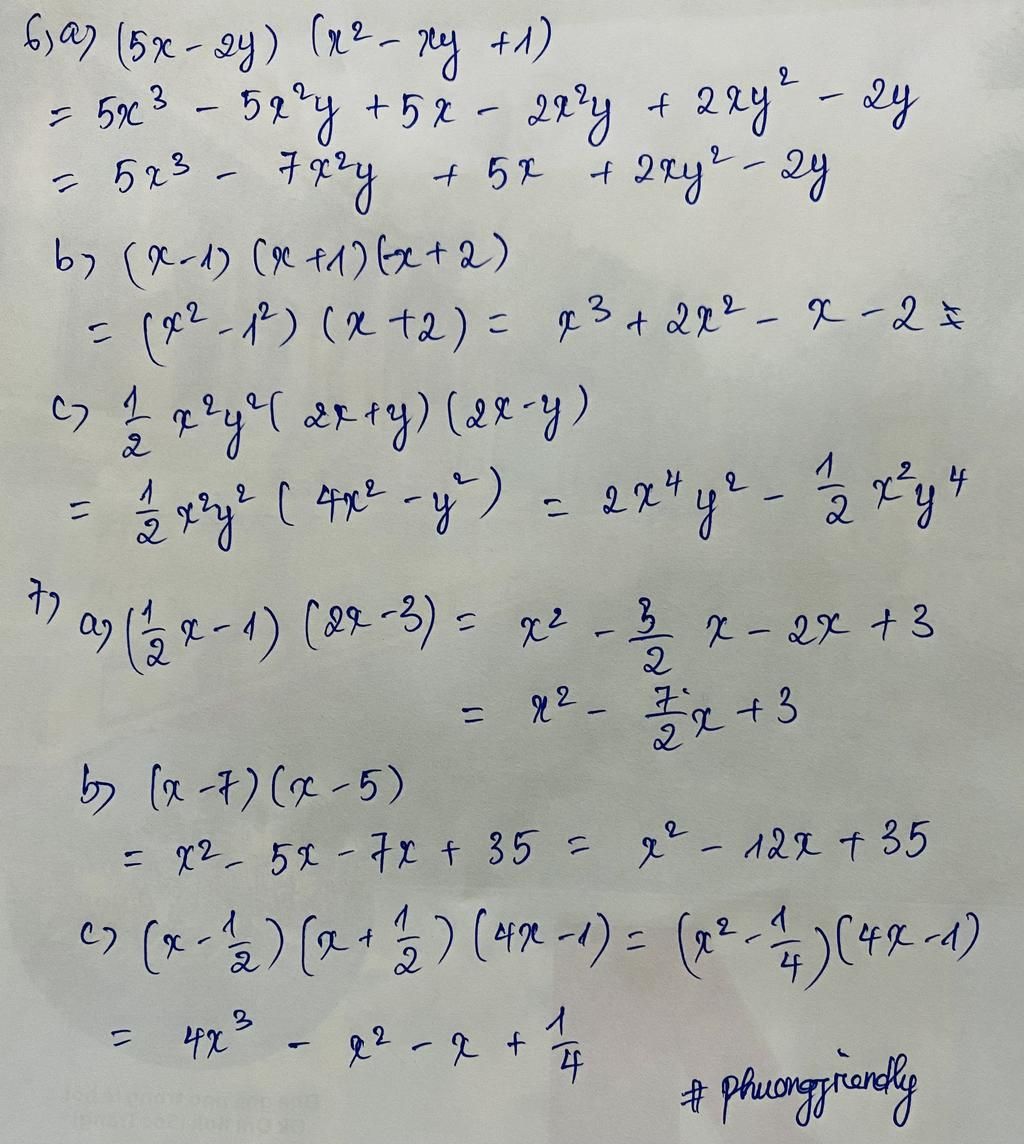 6, a) (5x - 2y) (x² - xy + 1)
= 5x³ - 5x²y + 5x - 2x²y + 2xy² - 2y
= 5x³ - 7x²y + 5x + 2xy² - 2y
b) (x-1) (x+1) (x+2)
= (x² - 1²) (x + 2) = x³ + 2x² - x - 2
c) 1/2 x²y² (2x+y) (2x-y)
= 1/2 x²y² (4x² - y²) = 2x⁴y² - 1/2 x²y⁴
7) a) (1/2 x - 1) (2x - 3) = x² - 3/2 x - 2x + 3
= x² - 7/2 x + 3
b) (x - 7) (x - 5)
= x² - 5x - 7x + 35 = x² - 12x + 35
c) (x - 1/2) (x + 1/2) (4x - 1) = (x² - 1/4) (4x - 1)
= 4x³ - x² - x + 1/4
# phuongfriendly